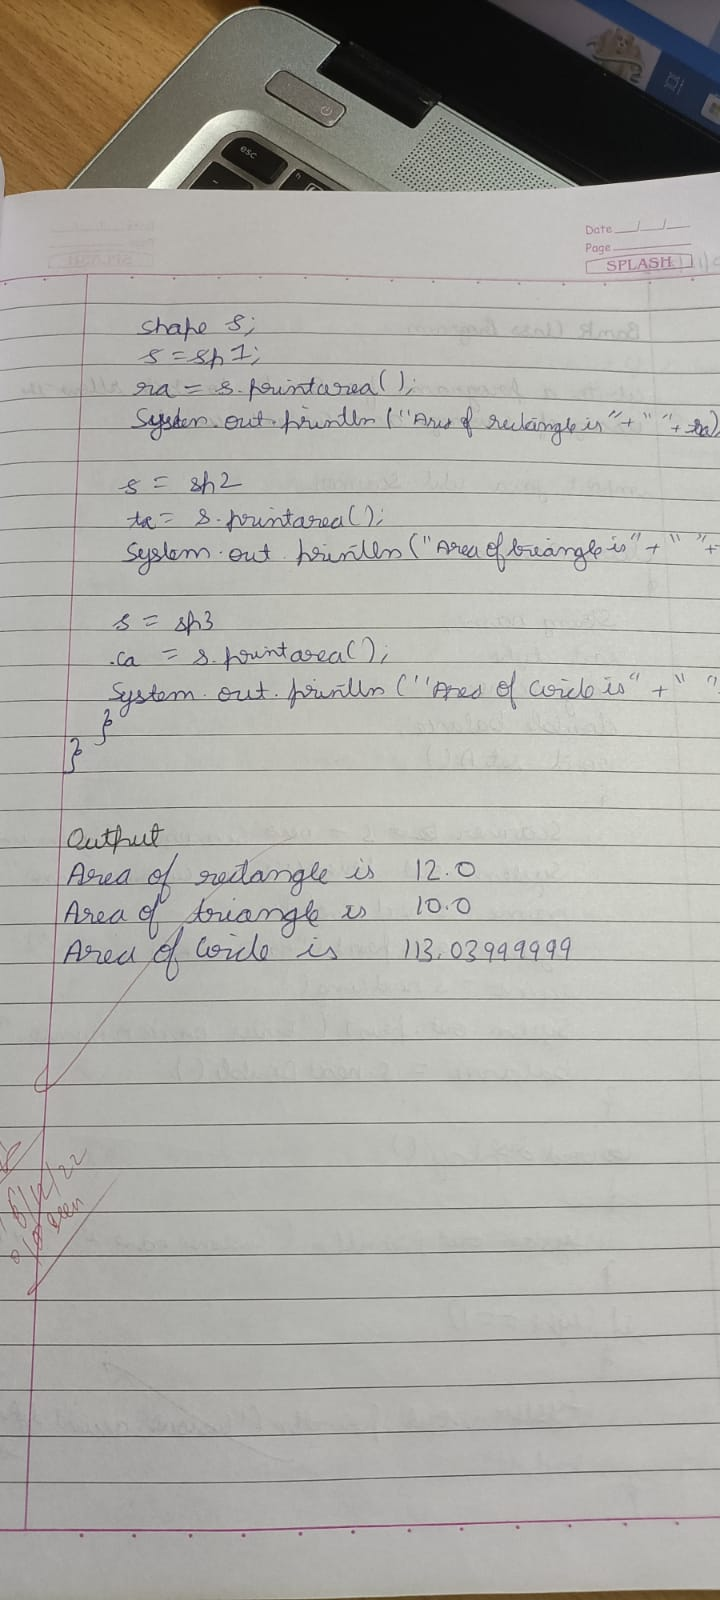 esc
Date
Page
SPLASH
shape s;
s = sp1;
ra = s.printarea();
System.out.println ("Area of rectangle is"+" "+ ra)
s = sp2
ta = s.printarea();
System.out.println ("Area of triangle is"+" "+
s = sp3
ca = s.printarea();
System.out.println ("Area of Circle is"+" "
}
}
Output
Area of rectangle is 12.0
Area of triangle is 10.0
Area of Circle is 113.03999999
o/p seen